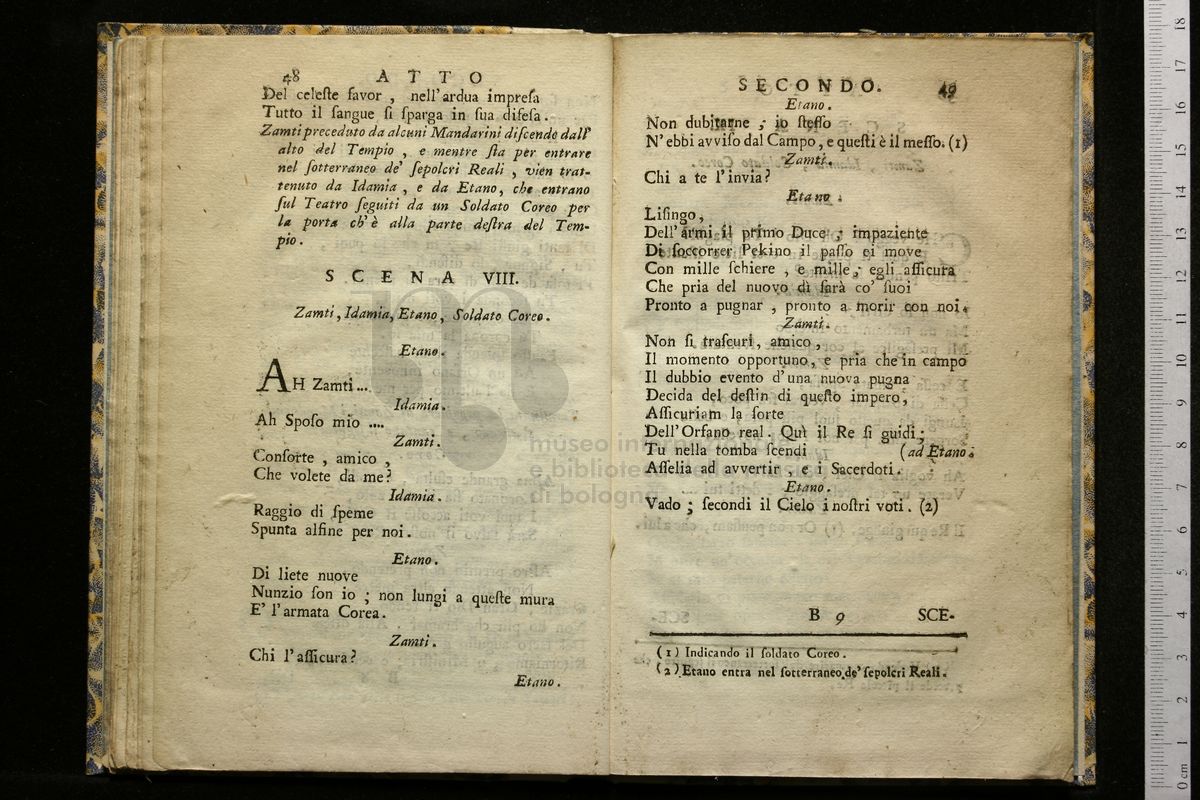 48 ATTO
Del celeſte favor , nell'ardua impreſa
Tutto il ſangue ſi ſparga in ſua difeſa.
Zamti preceduto da alcuni Mandarini diſcende dall'
alto del Tempio , e mentre ſta per entrare
nel ſotterraneo de' ſepolcri Reali , vien trat-
tenuto da Idamia , e da Etano, che entrano
ſul Teatro ſeguiti da un Soldato Coreo per
la porta ch'è alla parte deſtra del Tem-
pio.
SCENA VIII.
Zamti, Idamia, Etano, Soldato Coreo.
Etano.
AH Zamti...
Idamia.
Ah Spoſo mio ....
Zamti.
Conſorte , amico ,
Che volete da me?
Idamia.
Raggio di ſpeme
Spunta alfine per noi.
Etano.
Di liete nuove
Nunzio ſon io ; non lungi a queſte mura
E' l'armata Corea.
Zamti.
Chi l'aſſicura?
Etano.
SECONDO. 49
Etano.
Non dubitarne ; io ſteſſo
N'ebbi avviſo dal Campo, e queſti è il meſſo. (1)
Zamti.
Chi a te l'invia?
Etano.
Liſingo,
Dell'armi il primo Duce ; impaziente
Di ſoccorrer Pekino il paſſo ei move
Con mille ſchiere , e mille ; egli aſſicura
Che pria del nuovo dì ſarà co' ſuoi
Pronto a pugnar , pronto a morir con noi.
Zamti.
Non ſi traſcuri, amico ,
Il momento opportuno, e pria che in campo
Il dubbio evento d'una nuova pugna
Decida del deſtin di queſto impero,
Aſſicuriam la ſorte
Dell'Orfano real. Quì il Re ſi guidi ;
Tu nella tomba ſcendi (ad Etano.
Aſſelia ad avvertir , e i Sacerdoti.
Etano.
Vado ; ſecondi il Cielo i noſtri voti. (2)
B 9 SCE-
(1) Indicando il ſoldato Coreo.
(2) Etano entra nel ſotterraneo de' ſepolcri Reali.
museo
e bibliote
di bologna
18
17
16
15
14
13
12
11
10
9
8
7
6
5
4
3
2
1
0 cm